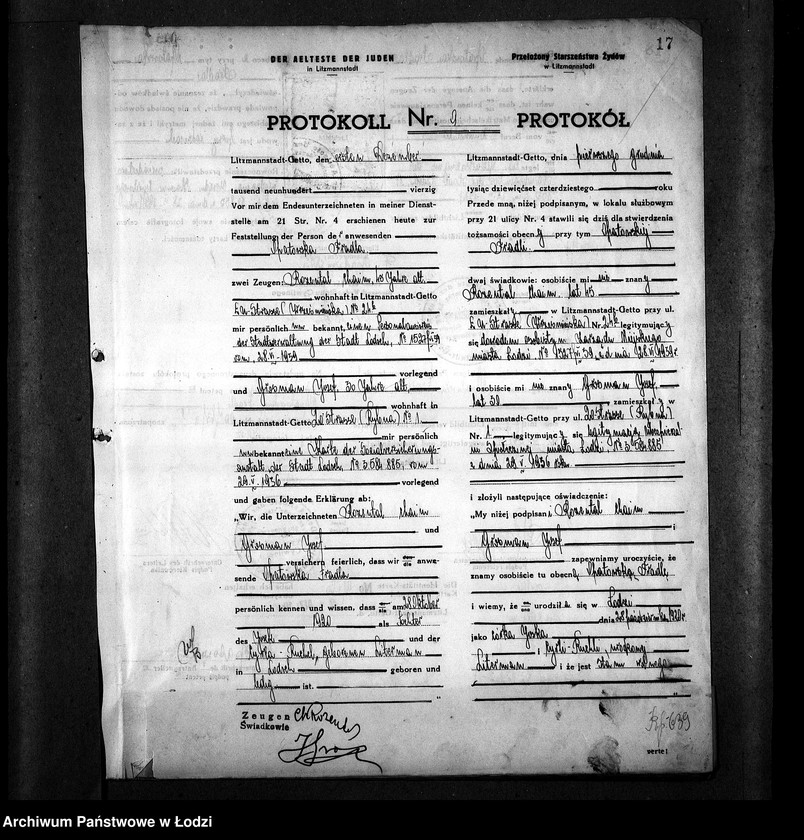 17
DER AELTESTE DER JUDEN
in Litzmannstadt
Przełożony Starszeństwa Żydów
w Litzmannstadt
PROTOKOLL Nr. 9 PROTOKÓŁ
Litzmannstadt-Getto, den ersten Dezember
tausend neunhundert vierzig
Vor mir dem Endesunterzeichneten in meiner Dienst-
stelle am 21 Str. Nr. 4 erschienen heute zur
Feststellung der Person der anwesenden
Opatowska Fradla
zwei Zeugen: Rozental Chaim, 45 Jahre alt
wohnhaft in Litzmannstadt-Getto
mir persönlich bekannt, einen Personalausweis
der Stadtverwaltung der Stadt Lodsch, №
vom 28.VI-1939
vorlegend
und Grosman Josef, 30 Jahre alt,
wohnhaft in
Litzmannstadt-Getto Strasse (Rybna) № 1
mir persönlich
bekannt eine Karte der Sozialversicherungs-
anstalt der Stadt Lodsch, № 3.581.885, vom
29.V-1936 vorlegend
und gaben folgende Erklärung ab:
„Wir, die Unterzeichneten Rozental Chaim
und
Grosman Josef
versichern feierlich, dass wir die anwe-
sende Opatowska Fradla
persönlich kennen und wissen, dass sie am 28 Oktober
1920 als Tochter
des Josek und der
Rykla-Ruchel, geborenen Literman
in Lodsch geboren und
ledig ist.
"
Litzmannstadt-Getto, dnia pierwszego grudnia
tysiąc dziewięćset czterdziestego roku
Przede mną, niżej podpisanym, w lokalu służbowym
przy 21 ulicy Nr. 4 stawili się dziś dla stwierdzenia
tożsamości obecnej przy tym Opatowskiej
Fradli
dwaj świadkowie: osobiście mi nie znany
Rozental Chaim, lat 45
zamieszkały w Litzmannstadt-Getto przy ul.
Strasse (Wrześnieńska) Nr. legitymujący
się dowodem osobistym Zarządu Miejskiego
miasta Lodzi №
i osobiście mi nie znany Grosman Josef,
lat 30 zamieszkały w
Litzmannstadt-Getto przy ul. Strasse (Rybna)
Nr. 1 legitymujący się legitymacją Ubezpieczal-
ni Społecznej miasta Lodzi № 3.581.885
z dnia 29.V-1936 roku
i złożyli następujące oświadczenie:
"My niżej podpisani Rozental Chaim
i
Grosman Josef
zapewniamy uroczyście, że
znamy osobiście tu obecną Opatowską Fradlę
i wiemy, że ona urodziła się w Lodzi
dnia 28 października 1920 r
jako córka Joska
i Rykli-Ruchli, urodzonej
Literman i że jest stanu wolnego
"
Zeugen
Świadkowie
Ch Rozental
verte!
Archiwum Państwowe w Łodzi